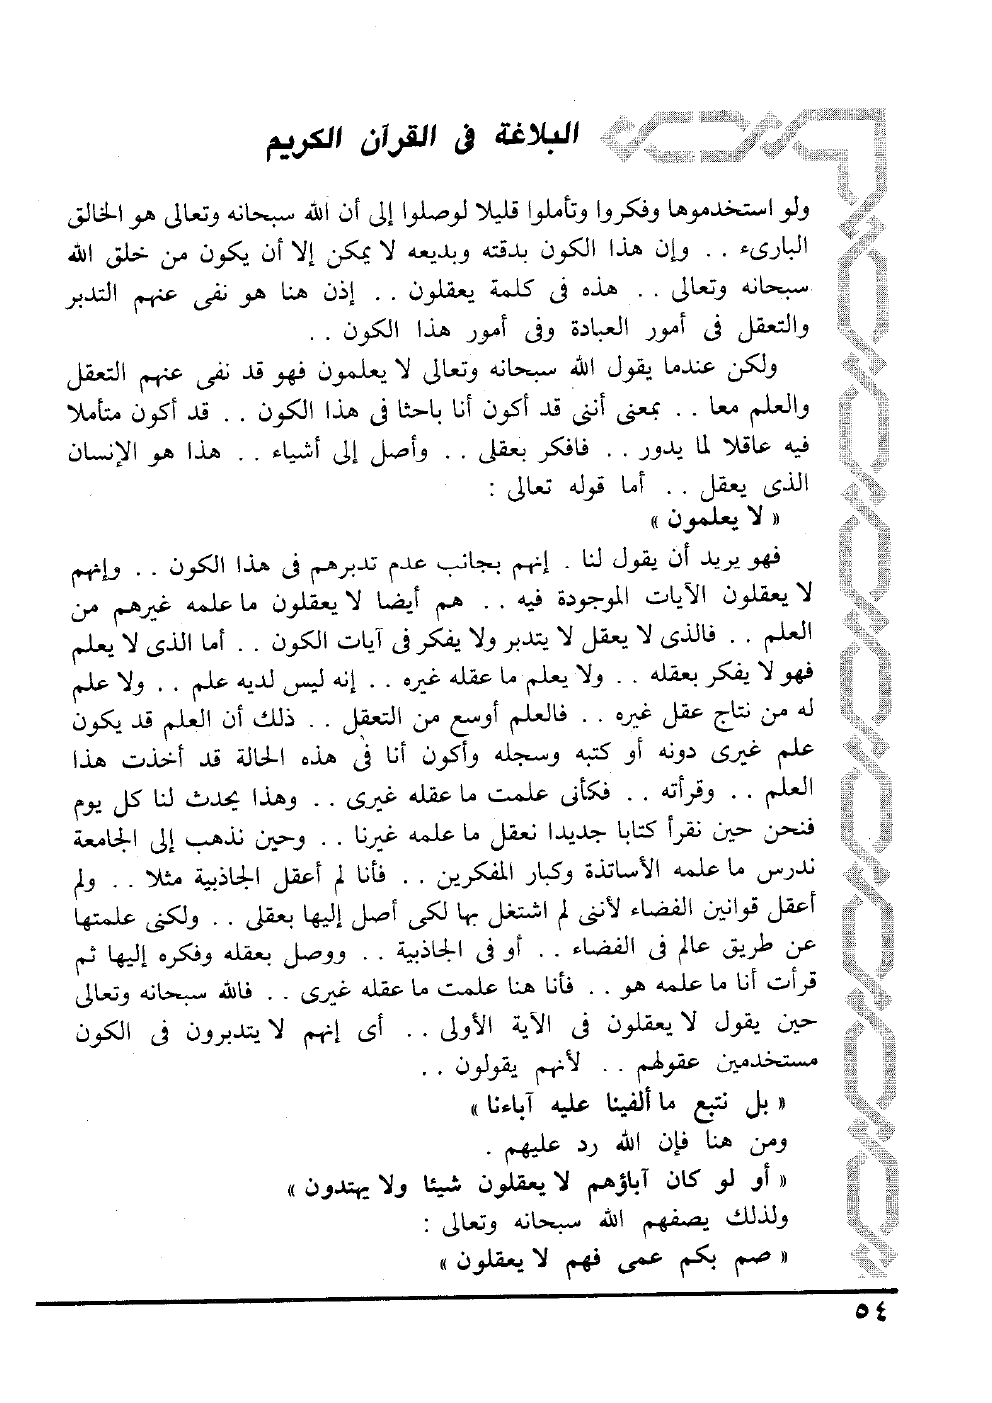 البلاغة فى القرآن الكريم
ولو استخدموها وفكروا وتأملوا قليلا لوصلوا إلى أن الله سبحانه وتعالى هو الخالق
البارىء . . وإن هذا الكون بدقته وبديعه لا يمكن إلا أن يكون من خلق الله
سبحانه وتعالى . . هذه فى كلمة يعقلون . . إذن هنا هو نفى عنهم التدبر
والتعقل فى أمور العبادة وفى أمور هذا الكون . .
ولكن عندما يقول الله سبحانه وتعالى لا يعلمون فهو قد نفى عنهم التعقل
والعلم معا . . بمعنى أننى قد أكون أنا باحثا فى هذا الكون . . قد أكون متأملا
فيه عاقلا لما يدور . . فافكر بعقلى . . وأصل إلى أشياء . . هذا هو الإنسان
الذى يعقل . . أما قوله تعالى :
« لا يعلمون »
فهو يريد أن يقول لنا . إنهم بجانب عدم تدبرهم فى هذا الكون . . وإنهم
لا يعقلون الآيات الموجودة فيه . . هم أيضا لا يعقلون ما علمه غيرهم من
العلم . . فالذى لا يعقل لا يتدبر ولا يفكر فى آيات الكون . . أما الذى لا يعلم
فهو لا يفكر بعقله . . ولا يعلم ما عقله غيره . . إنه ليس لديه علم . . ولا علم
له من نتاج عقل غيره . . فالعلم أوسع من التعقل . . ذلك أن العلم قد يكون
علم غيرى دونه أو كتبه وسجله وأكون أنا فى هذه الحالة قد أخذت هذا
العلم . . وقرأته . . فكأنى علمت ما عقله غيرى . . وهذا يحدث لنا كل يوم
فنحن حين نقرأ كتابا جديدا نعقل ما علمه غيرنا . . وحين نذهب إلى الجامعة
ندرس ما علمه الأساتذة وكبار المفكرين . . فأنا لم أعقل الجاذبية مثلا . . ولم
أعقل قوانين الفضاء لأننى لم اشتغل بها لكى أصل إليها بعقلى . . ولكنى علمتها
عن طريق عالم فى الفضاء . . أو فى الجاذبية . . ووصل بعقله وفكره إليها ثم
قرأت أنا ما علمه هو . . فأنا هنا علمت ما عقله غيرى . . فالله سبحانه وتعالى
حين يقول لا يعقلون فى الآية الأولى . . أى إنهم لا يتدبرون فى الكون
مستخدمين عقولهم . . لأنهم يقولون . .
« بل نتبع ما ألفينا عليه آباءنا »
ومن هنا فإن الله رد عليهم .
« أو لو كان آباؤهم لا يعقلون شيئا ولا يهتدون »
ولذلك يصفهم الله سبحانه وتعالى :
« صم بكم عمى فهم لا يعقلون »
٥٤